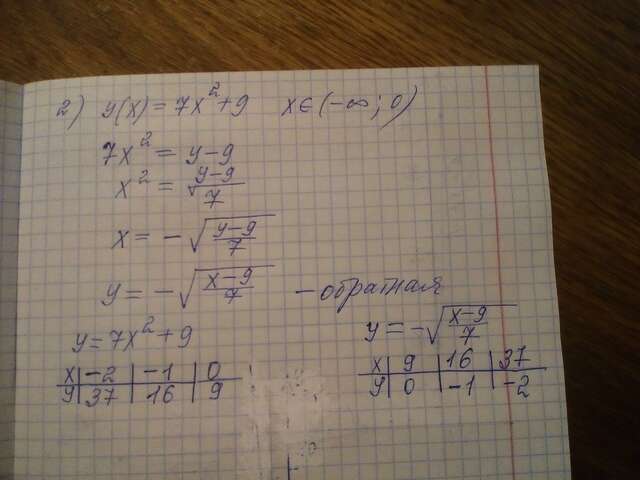 2) y(x) = 7x² + 9   x ∈ (-∞; 0)
7x² = y-9
x² = (y-9)/7
x = -√((y-9)/7)
y = -√((x-9)/7) - обратная
y = 7x² + 9
x | -2 | -1 | 0
y | 37 | 16 | 9
y = -√((x-9)/7)
x | 9 | 16 | 37
y | 0 | -1 | -2